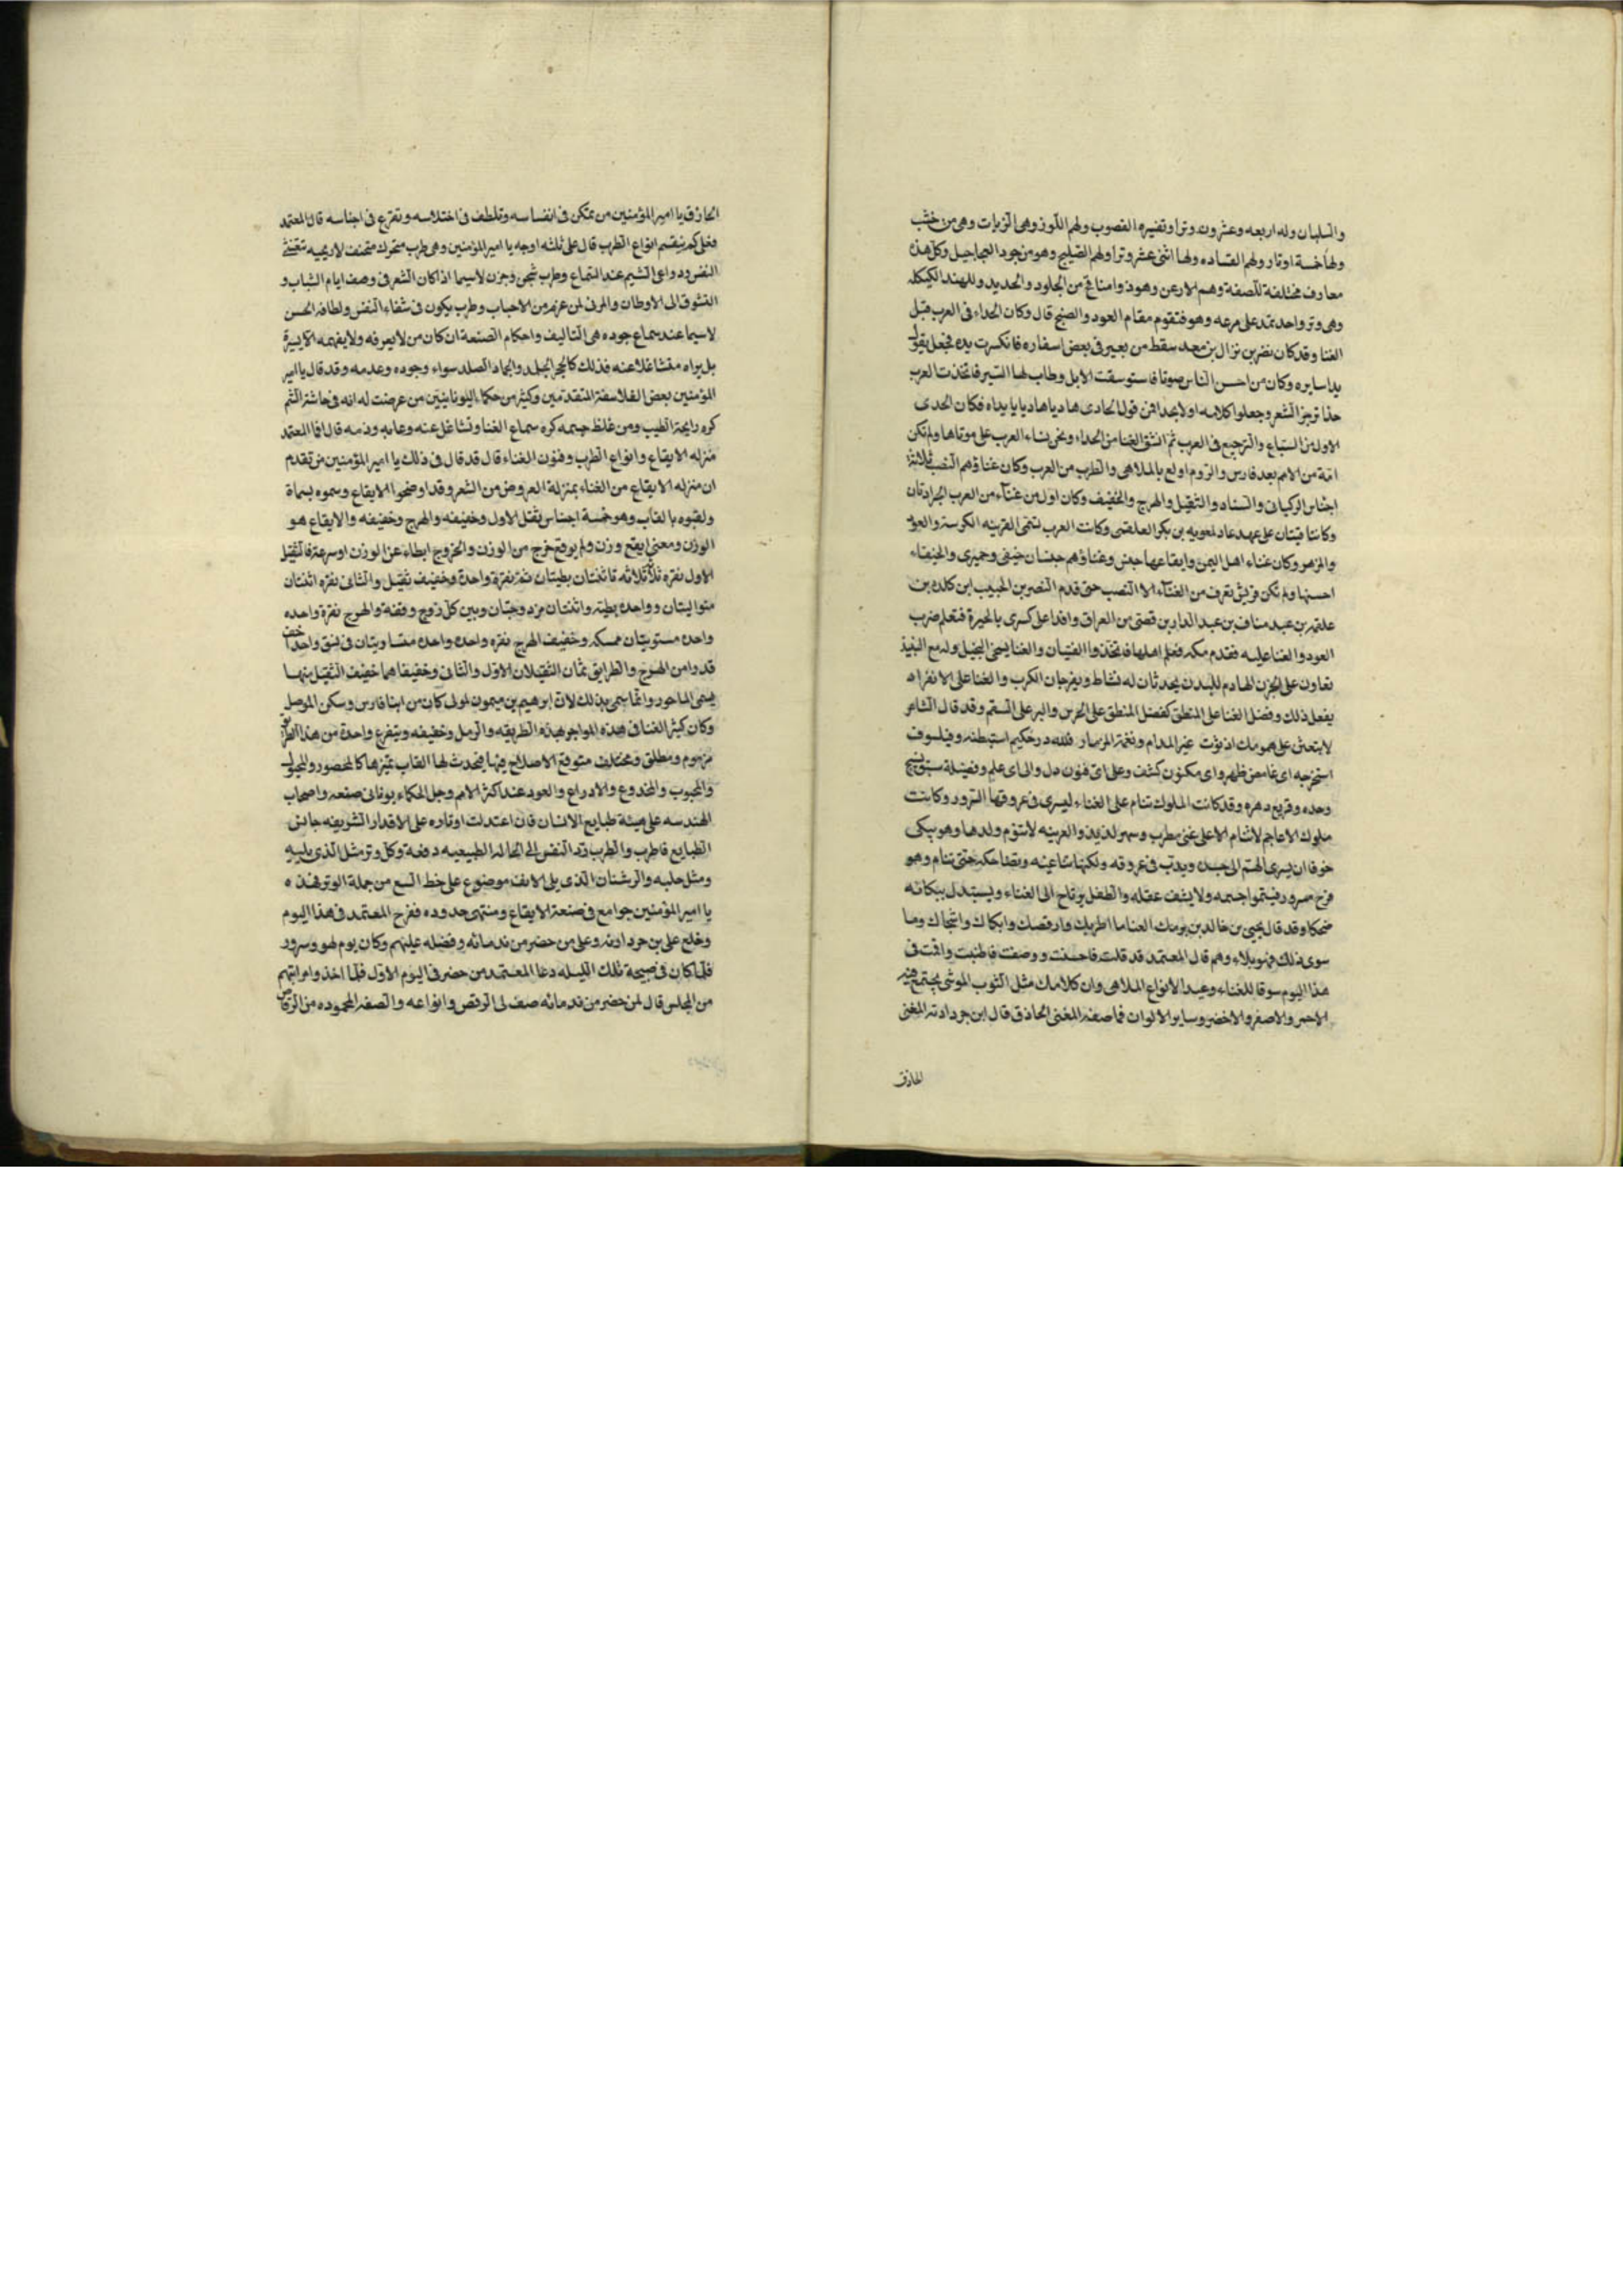 والسلبان وله اربعه وعشرون وترا وتفسيره القصوب ولهم اللوز وهى الزبات وهى من خشب
ولها خمسة اوتار ولهم القساده ولها اثنى عشر وترا ولهم الصليبج وهو من جود العجاجيل وكل هذه
معارف مختلفة للصفة وهم الارعن وهو ذو امناخ من الجلود والحديد وللهند الكيكله
وهى وتر واحد تمد على مرعه وهو فتقوم مقام العود والصنج قال وكان الحداء فى العرب قبل
الغنا وقد كان نضر بن نزال بن معد سقط من بعير فى بعض اسفاره فانكسرت يده فجعل يقول
يدا سايره وكان من احسن الناس صوتا فاستوسقت الابل وطاب لها السير فاتخذت العرب
حذا ترجز الشعر وجعلوا كلامه اولا بعدا فمن قول الحادى هاديا هاديا يا يداه فكان الحدى
الاول من السباع والترجيع فى العرب ثم اشتق الغنا من الحداء ونحن نساء العرب على موتاها ولم تكن
امة من الامم بعد فارس والروم اولع بالملاهى والطرب من العرب وكان غناؤهم النصب ثلاثة
اجناس الركبانى والسناد والثقيل والهرج والخفيف وكان اول من غناء من العرب الجرادتان
وكانتا قينتان على عهد عاد لمعويه بن بكر العلقمى وكانت العرب تسمى القرينه الكوسنه والعود
والمزهر وكان غناء اهل اليمن وايقاعها جنس وغناؤهم جنسان حنفى وحميرى والحنيفاء
احسنها ولم تكن قريش تعرف من الغناء الا النصب حتى قدم النضر بن الحبيب ابن كلده بن
علقمه بن عبد مناف بن عبد الدار بن قصى من العراق وافدا على كسرى بالحيرة فتعلم ضرب
العود والغنا عليه فقدم مكه فعلم اهلها فاتخذوا الفتيان والغنا يسمى البخيل وله مع النبيذ
تعاون على الحزن الهادم للبدن يحدثان له نشاط ويفرجان الكرب والغنا على الانفراد
يفعل ذلك وفضل الغنا على المنطق كفضل المنطق على الخرس والبر على السقم وقد قال الشاعر
لا تبعثن على همومك اذ ثوت غير المدام ونغمة المزمار فلله در حكيم استبطنه وفيلسوف
استخرجه اى غامض ظهر واى مكنون كشف وعلى اى فنون دل والى اى علم وفضيلة سبق نسج
وحده وقريع دهره وقد كانت الملوك تنام على الغناء ليسرى فى عروقها السرور وكانت
ملوك الاعاجم لا تنام الا على غنى مطرب وسهر لذيذ والعربيه لا تنوم ولدها وهو يبكى
خوفا ان يسرى الهم الى جسده ويدب فى عروقه ولكنها تناغيه وتضاحكه حتى ينام وهو
فرح مسرور فينموا جسمه ولا يشف عقله والطفل يرتاح الى الغناء ويستبدل ببكائه
ضحكا وقد قال يحيى بن خالد بن برمك الغنا ما اطربك وارقصك وابكاك واشجاك وما
سوى ذلك فهو بلاء وهم قال المعتمد قد قلت فاحسنت ووصفت فاطنبت واقمت فى
هذا اليوم سوقا للغناء وعيدا لانواع الملاهى وان كلامك مثل الثوب الموشى يجتمع فيه
الاحمر والاصفر والاخضر وساير الالوان فما صفة المغنى الحاذق قال ابن جردادنه المغنى
الحاذق
الحاذق يا امير المؤمنين من تمكن فى انفاسه وتلطف فى اختلاسه وتفرع فى اجناسه قال المعتمد
فعلى كم ينقسم انواع الطرب قال على ثلثه اوجه يا امير المؤمنين وهى طرب متحرك متخنث لاريحيه تنعش
النفس ودواعى الشيم عند السماع وطرب شجى وحزن لاسيما اذا كان الشعر فى وصف ايام الشباب و
التشوق الى الاوطان والمرثى لمن عزم من الاحباب وطرب يكون فى شفاء النفس ولطافه الحسن
لاسيما عند سماع جوده هى التاليف واحكام الصنعة ان كان من لا يعرفه ولا يفهمه لا يسره
بل يراه متشاغلا عنه فذلك كالحجر الجلد والجماد الصلد سواء وجوده وعدمه وقد قال يا امير
المؤمنين بعض الفلاسفة المتقدمين وكثير من حكماء اليونانيين من عرضت له انه فى حاشة الشم
كره رايحة الطيب ومن غلظ جسمه كره سماع الغنا وتشاغل عنه وعابه وذمه قال فما المعتمد
منزله الايقاع وانواع الطرب وفنون الغناء قال قد قال فى ذلك يا امير المؤمنين من تقدم
ان منزله الايقاع من الغناء بمنزلة العروض من الشعر وقد اوضحوا الايقاع وسموه بسماة
ولقبوه بالقاب وهو خمسة اجناس ثقل الاول وخفيفه والهرج وخفيفه والايقاع هو
الوزن ومعنى ايقع وزن ولم يوقع خرج من الوزن والخروج ابطاء عن الوزن او سرعة فالثقيل
الاول نقره ثلاثة ثلاثه تا ثنتان بطيتان ثم نقرة واحدة وخفيف ثقيل والثانى نقره اثنتان
متواليتان وواحده بطيه واثنتان مزدوجتان وبين كل زوج وقفة والهرج نقرة واحده
واحده مستويتان ممسكه وخفيف الهرج نقره واحده واحده متساويتان فى نسق واحد اخف
قدرا من الهرج والطرايق ثمان الثقيلان الاول والثانى وخفيفاهما خفيف الثقيل منهما
يسمى الماحورد وانما سمى بذلك لان ابرهيم بن ميمون لمولى كان من ابنا فارس وسكن الموصل
وكان كثير الغنا فى هذه المواخر هذه الطريقه والرمل وخفيفه ويتفرع واحدة من هذا الطرايق
مزموم ومطلق ومختلف متوقع الاصلاح فيها فيحدث لها القاب تميزها كالمحصور والمحبول
والمحبوب والمخدوع والادراع والعود عند اكثر الامم وجل الحكماء يونانى صنعه واصحاب
الهندسه على هيئة طبايع الانسان فان اعتدلت اوتاره على الاقدار الشريفه جانس
الطبايع فاطرب والطرب رد النفس الى الحاله الطبيعيه دفعة وكل وتر مثل الذى يليه
ومثل حلبه والرشتان الذى يلى الانف موضوع على خط التسع من جملة الوتر فهذه
يا امير المؤمنين جوامع فى صنعة الايقاع ومنتهى حدوده ففرح المعتمد فى هذا اليوم
وخلع على بن جردادنه وعلى من حضر من ندمائه وفضله عليهم وكان يوم لهو وسرور
فلما كان فى صبيحة تلك الليله دعا المعتمد من حضر فى اليوم الاول فلما اخذوا مراتبهم
من المجلس قال لمن حضر من ندمائه صف لى الرقص وانواعه والصفه المحموده من الرقاص